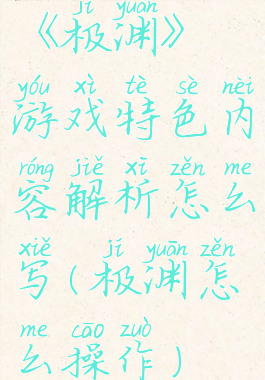 jí yuān
《极渊》
yóu xì tè sè nèi
游戏特色内
róng jiě xī zěn me
容解析怎么
xiě jí yuān zěn
写(极渊怎
me cāo zuò
么操作)